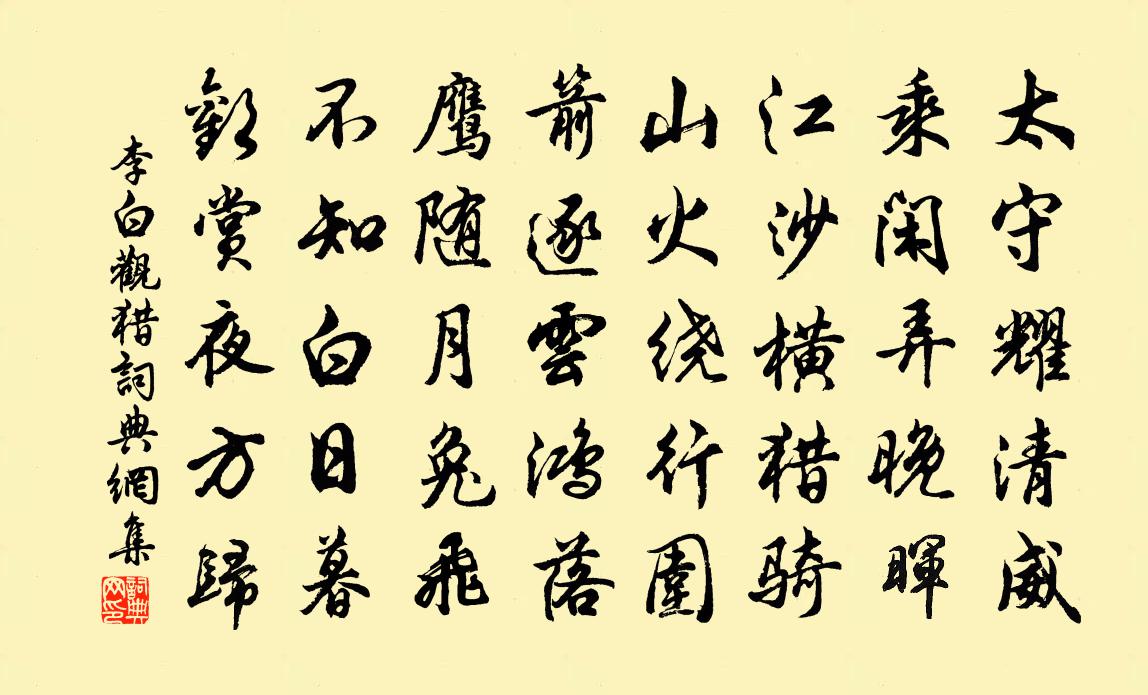 太守耀清威
乘闲弄晚暉
江沙橫猎骑
山火绕行圍
箭逐雲鸿落
鹰随月兔飛
不知白日暮
歡賞夜方歸
李白觀猎詞典網集
詞典